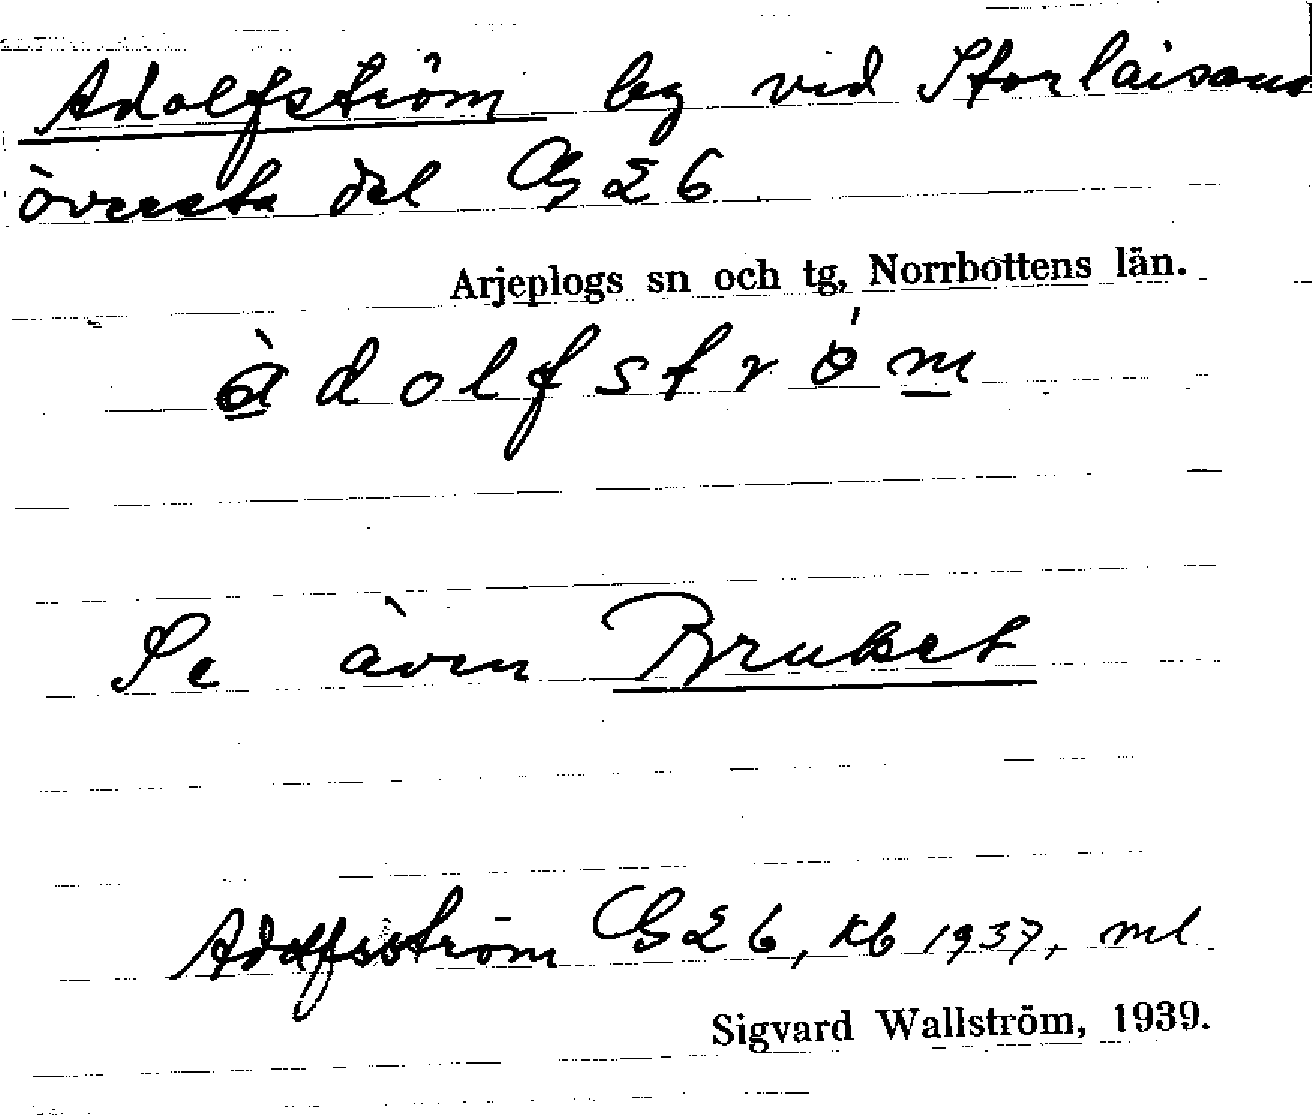 Adolfström by vid Storlaisans
översta del GB 26
Arjeplogs sn och tg, Norrbottens län.
àdolfstrǿm
Se även Bruket
Adolfsström GB 26, kb 1937, ml
Sigvard Wallström, 1939.